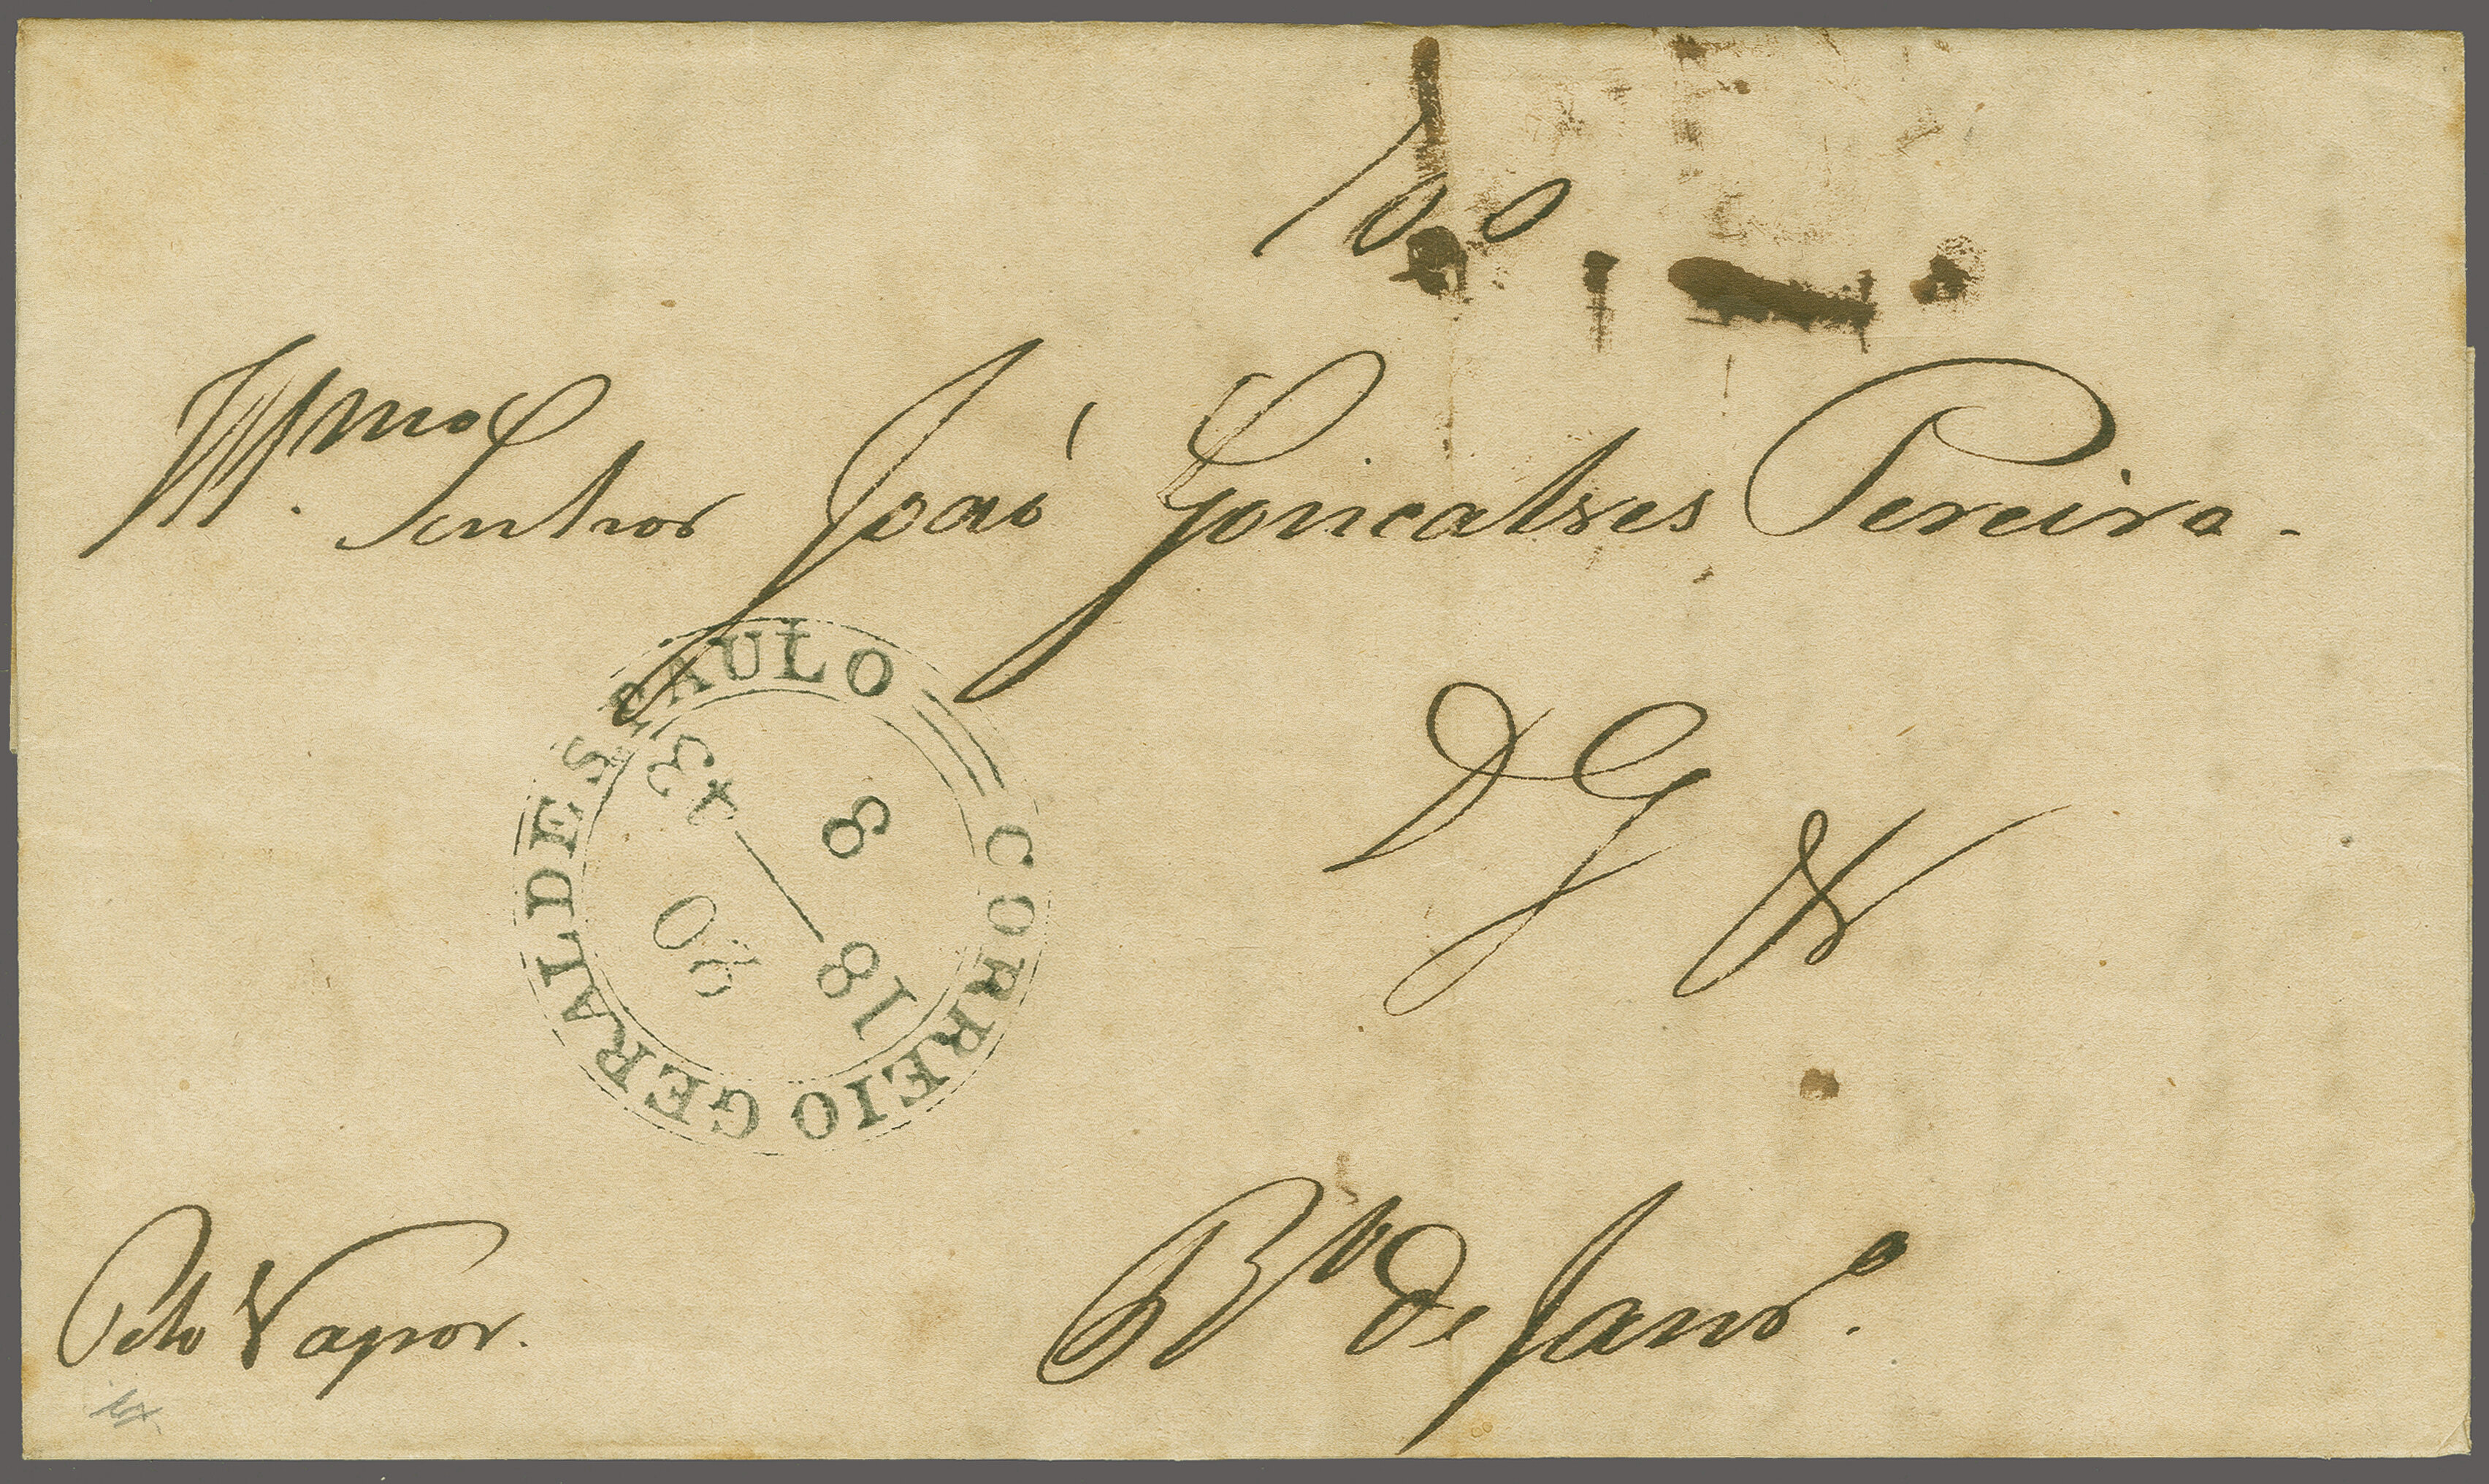 100
Illmo. Senhor João Goncalves Pereira.
CORREIO GERAL DE S. PAULO
20
18 — 43
8
D G &
Pelo Vapor.
Rio de Janro.